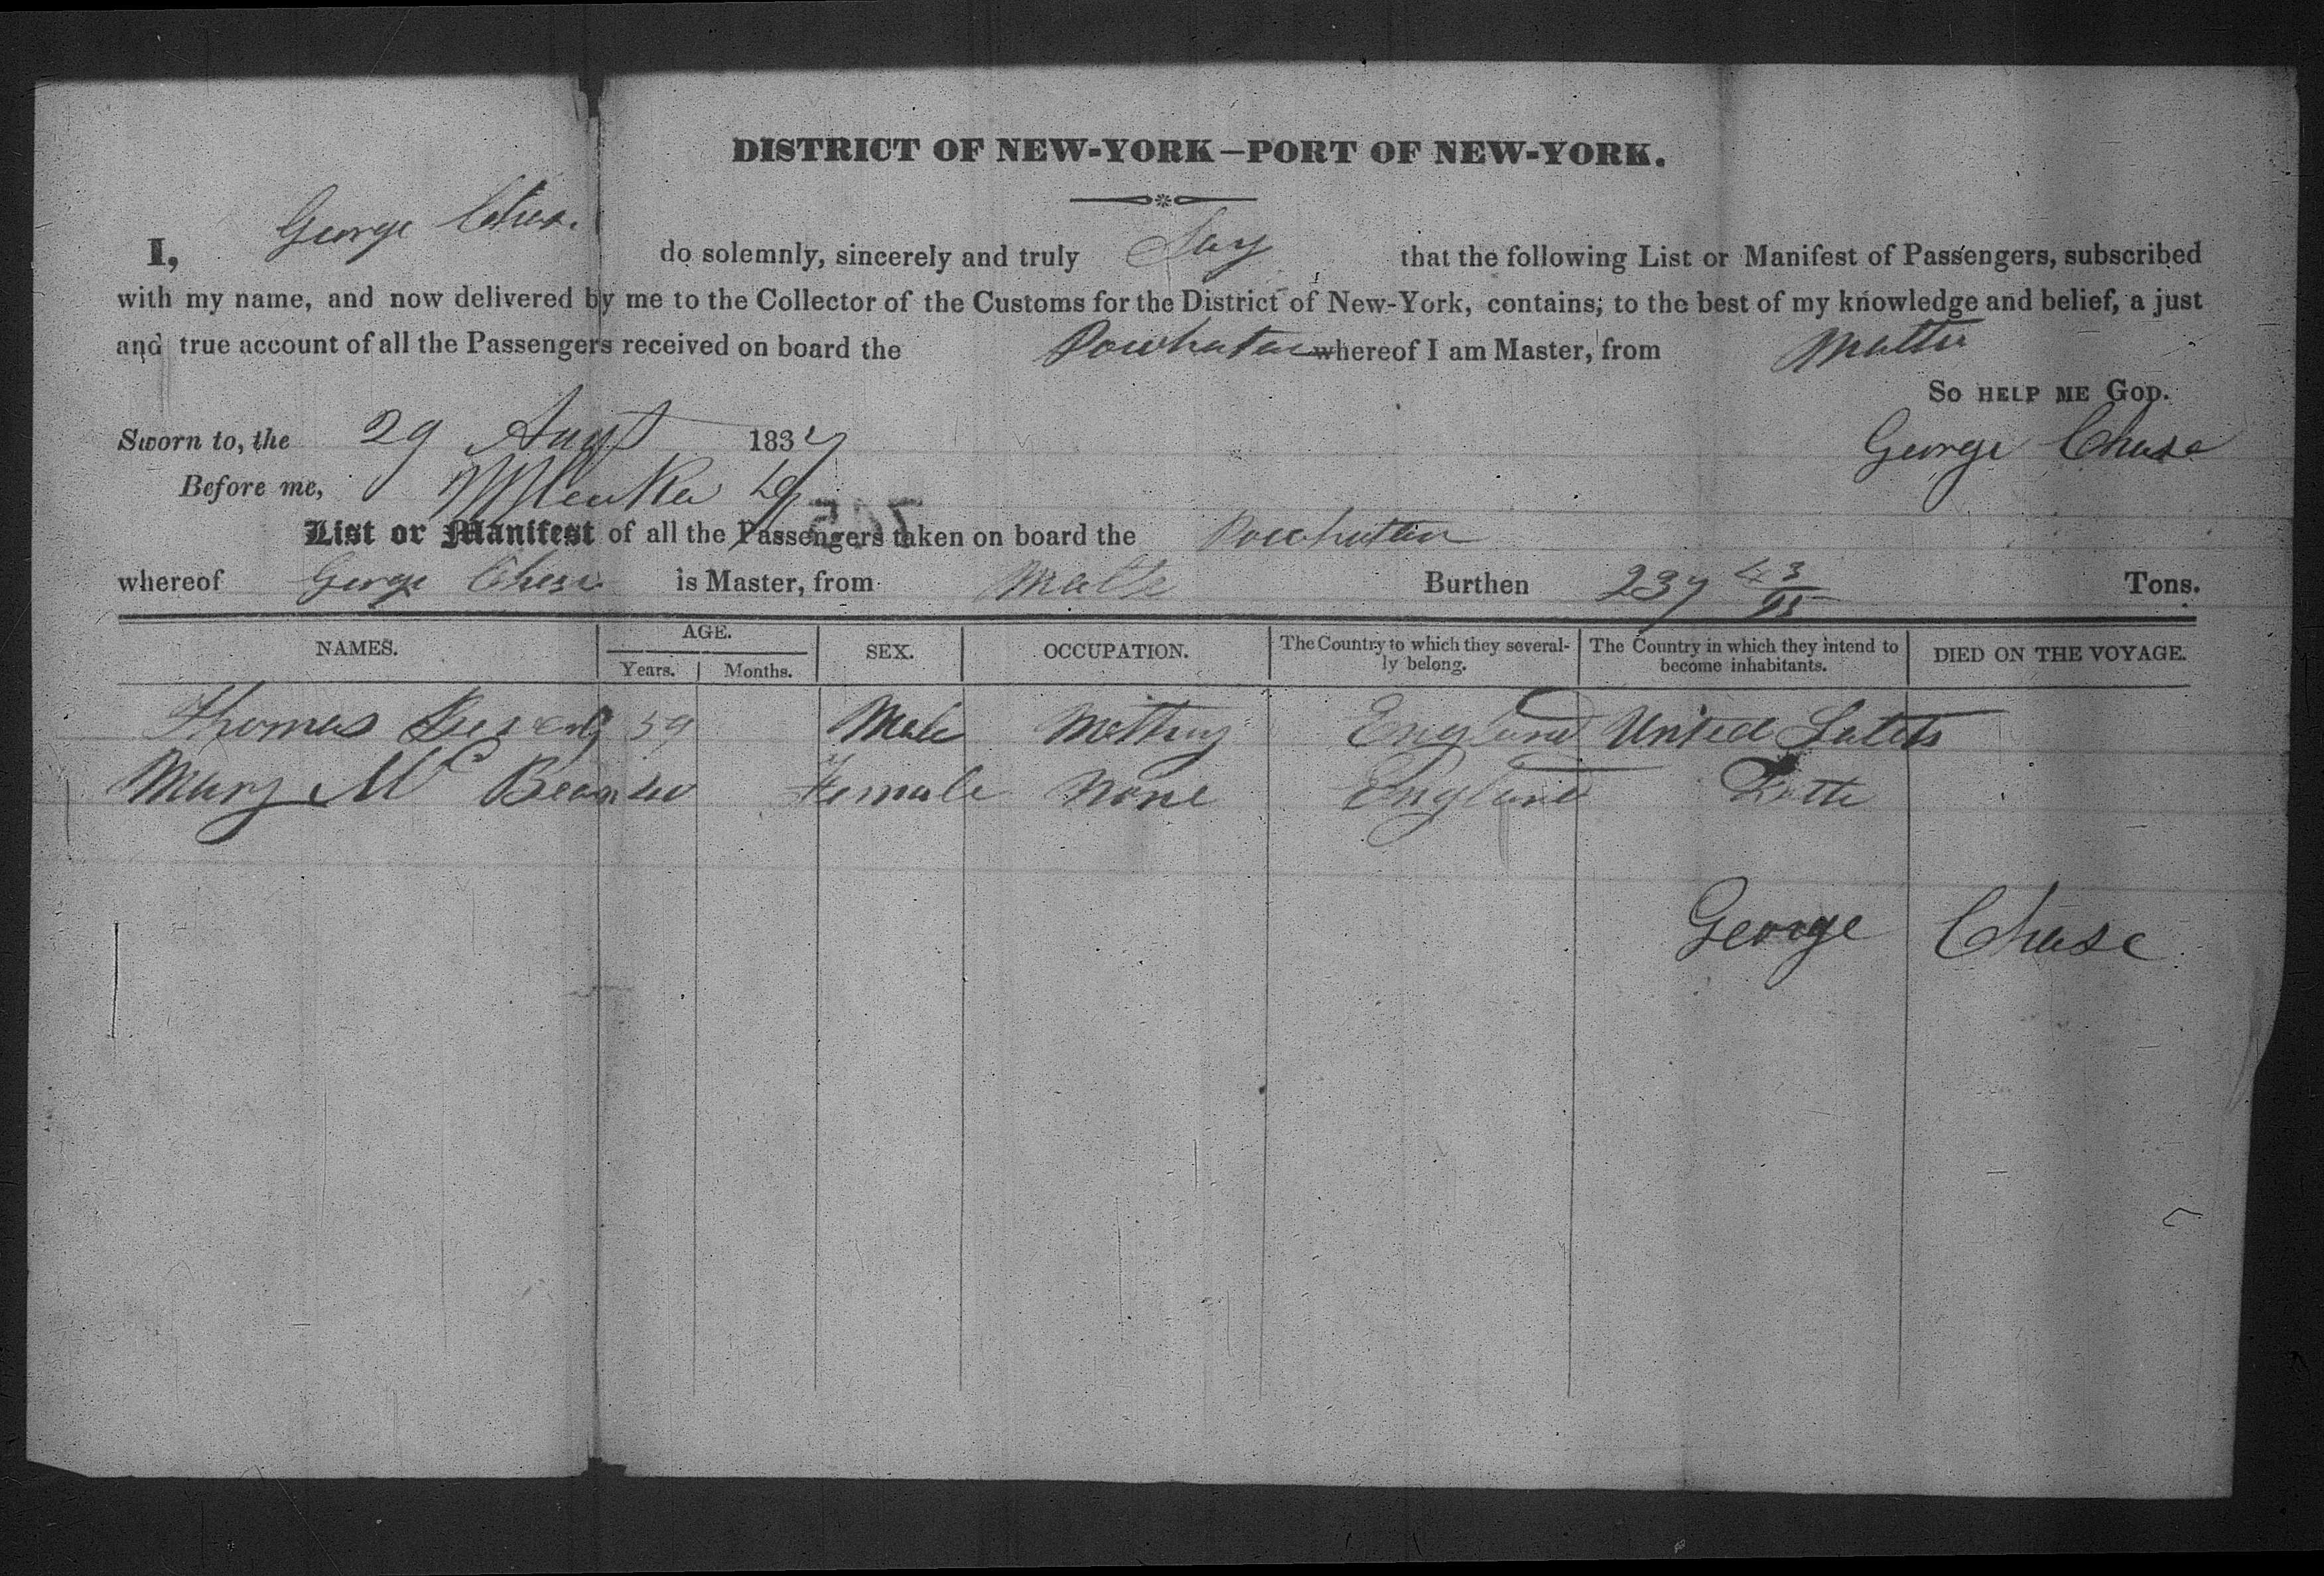 DISTRICT OF NEW-YORK—PORT OF NEW-YORK.
I, George Chase do solemnly, sincerely and truly Say that the following List or Manifest of Passengers, subscribed
with my name, and now delivered by me to the Collector of the Customs for the District of New-York, contains, to the best of my knowledge and belief, a just
and true account of all the Passengers received on board the Powhatan whereof I am Master, from Malta
So HELP ME GOD.
Sworn to, the 29 Augt 1837 George Chase
Before me,
List or Manifest of all the Passengers taken on board the Powhatan
whereof George Chase is Master, from Malta Burthen 237 43/95 Tons.
NAMES. AGE. SEX. OCCUPATION. The Country to which they several- The Country in which they intend to DIED ON THE VOYAGE.
Years. Months. ly belong. become inhabitants.
Thomas 59 Male England United States
Mary Mc Bean Female None England
George Chase